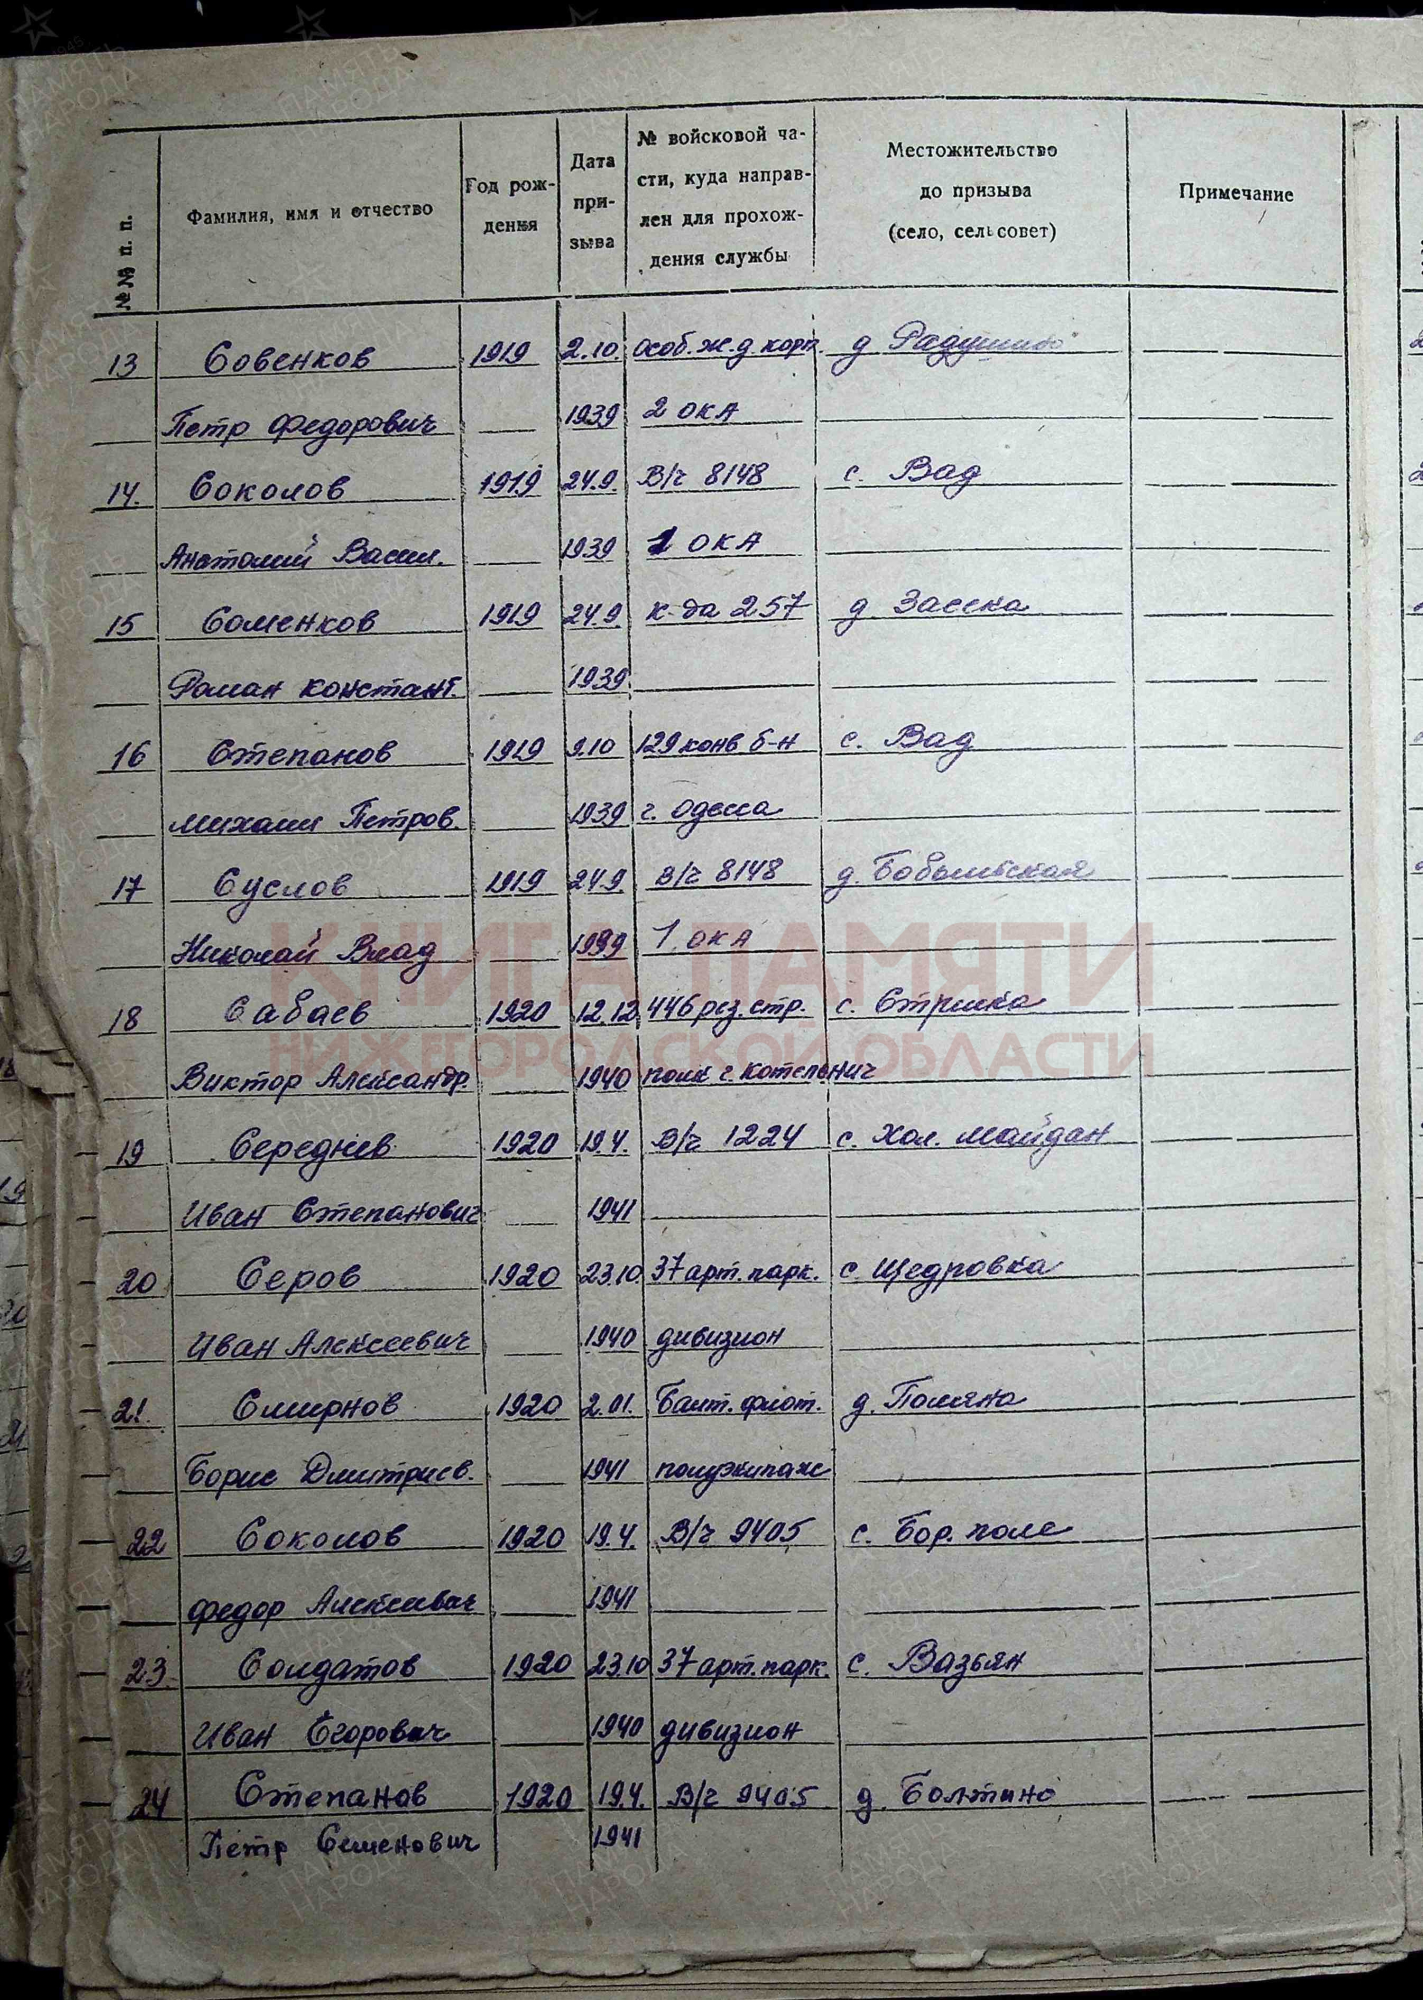 №№ п. п.
Фамилия, имя и отчество
Год рож-
дения
Дата
при-
зыва
№ войсковой ча-
сти, куда направ-
лен для прохож-
дения службы
Местожительство
до призыва
(село, сельсовет)
Примечание
13 Совенков 1919 2.10. особ. ж.д. корп. д.
Петр Федорович 1939 2 ОКА
14. Соколов 1919 24.9. В/г 8148 с. Вад
Анатолий Васил. 1939 1 ОКА
15 Соменков 1919 24.9. к-да 257 д. Засека
Роман Констант. 1939
16 Степанов 1919 9.10 129 конв б-н с. Вад
Михаил Петров. 1939 г. Одесса
17 Суслов 1919 24.9 В/г 8148 д. Бобыльская
Николай Влад 1939 1 ОКА
КНИГА ПАМЯТИ
18 Сабаев 1920 12.12 446 рез. стр. с. Стрелка
НИЖЕГОРОДСКОЙ ОБЛАСТИ
Виктор Александр. 1940 полк г. Котельнич
19 Середнев 1920 19.4. В/г 1224 с. Хол. Майдан
Иван Степанович 1941
20 Серов 1920 23.10. 37 арт. парк. с. Щедровка
Иван Алексеевич 1940 дивизион
21. Смирнов 1920 2.01. Балт. флот. д. Поляна
Борис Дмитриев. 1941 полуэкипаж
22 Соколов 1920 19.4. В/г 9405 с. Бор. поле
Федор Алексеевич 1941
23. Солдатов 1920 23.10 37 арт. парк. с. Вазьян
Иван Егорович 1940 дивизион
24 Степанов 1920 19.4. В/г 9405 д. Болтино
Петр Семенович 1941